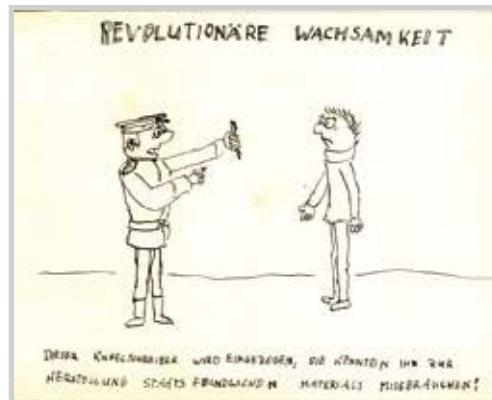 REVOLUTIONÄRE WACHSAMKEIT
DIESER KUGELSCHREIBER WIRD EINGEZOGEN, SIE KÖNNTEN IHN ZUR
HERSTELLUNG STAATSFEINDLICHEN MATERIALS MISSBRAUCHEN!